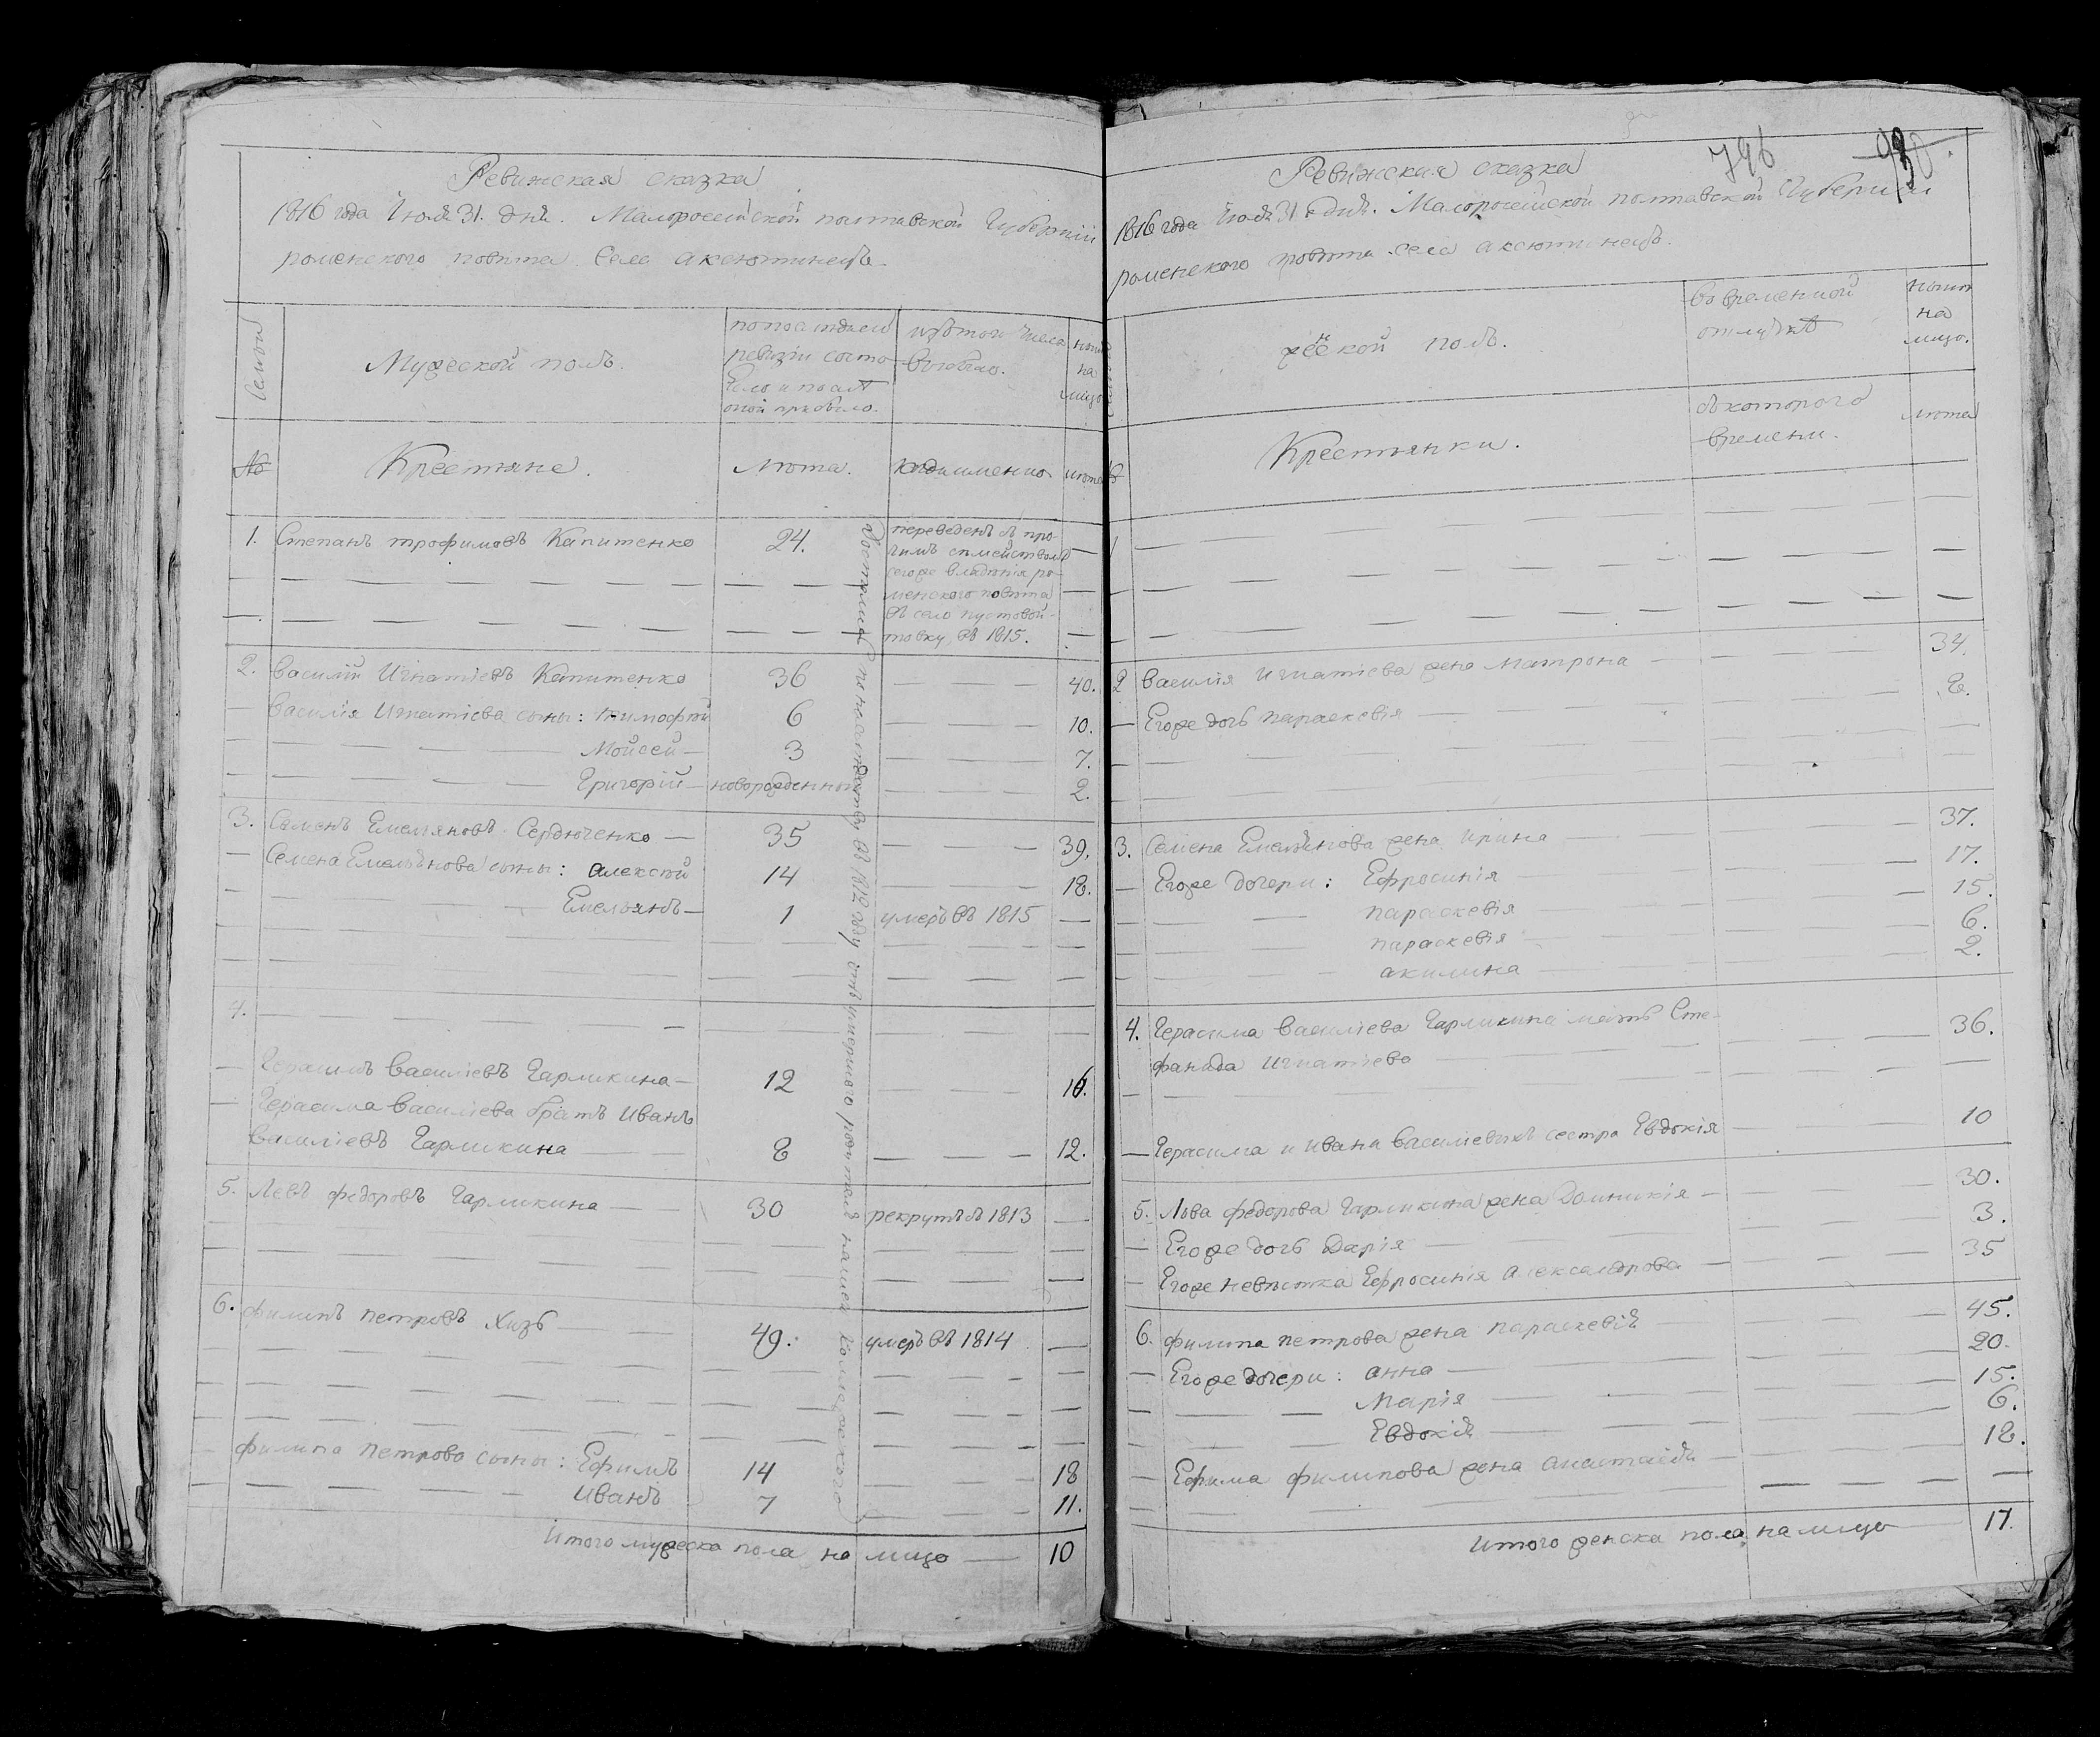 Ревижская сказка
1816 года Июля 31. дня. Малоросійской полтавской Губерніи
роменского повѣта Села аксютинецъ
Семьи
Мужеской полъ.
попоследней
ревизіи состо
яло и послѣ
оной прибыло.
изътого числа
выбыло.
ныне
на
лицо
№
Крестьяне.
Лѣта.
когдаименно
лѣта
1. Степанъ трофимовъ Капитенко 24. переведенъ съ про-
чимъ семействомъ
сегоже владѣнія ро-
менского повѣта
въ село пустовой-
товку, въ 1815.
2. василій Игнатіевъ Капитенко 36 40.
василія Игнатіева сыны: тимофѣй 6 10.
Мойсей 3 7.
Григорій новорожденной 2.
3. Семенъ Емельяновъ Сердюченко 35 39.
Семена Емельянова сыны: алексѣй 14 18.
Емельянъ 1 умеръ въ 1815
4.
Герасимъ василіевъ Гарликина 12 16.
Герасима василіева братъ иванъ
василіевъ Гарликина 8 12.
5. Левъ федоровъ Гарликина 30 рекрутъ въ 1813
6. филипъ петровъ Хизь 49. умеръ въ 1814
филипа петрова сыны: Ефимъ 14 18
иванъ 7 11.
Итого мужеска пола на лицо 10
Достались по наследству въ 1812 году отъ умершого родителя нашей Колежского
796 930.
Ревижская сказка
1816 года Июля 31. дня. Малоросійской полтавской Губерніи
роменского повѣта села аксютинецъ.
женской полъ.
во временной
отлучкѣ
ныне
на
лицо.
Крестьянки.
съкоторого
времени.
лѣта
1
2 василія игнатіева жена матрона 34.
Егоже дочь параскевія 8.
3. Семена Емельянова жена ирина 37.
Егоже дочери: Ефросинія 17.
параскевія 15.
параскевія 6.
акилина 2.
4. Герасима василіева Гарликина мать Сте-
фанида игнатіева 36.
Герасима и ивана василіевыхъ сестра Евдокія 10
5. Льва федорова Гарликина жена Домникія 30.
Егоже дочь Дарія 3.
Егоже невѣстка Ефросинія александрова 35
6. филипа петрова жена параскевія 45.
Егоже дочери: анна 20.
марія 15.
Евдокія 6.
Ефима филипова жена анастасія 18.
итого женска пола на лицо 17.